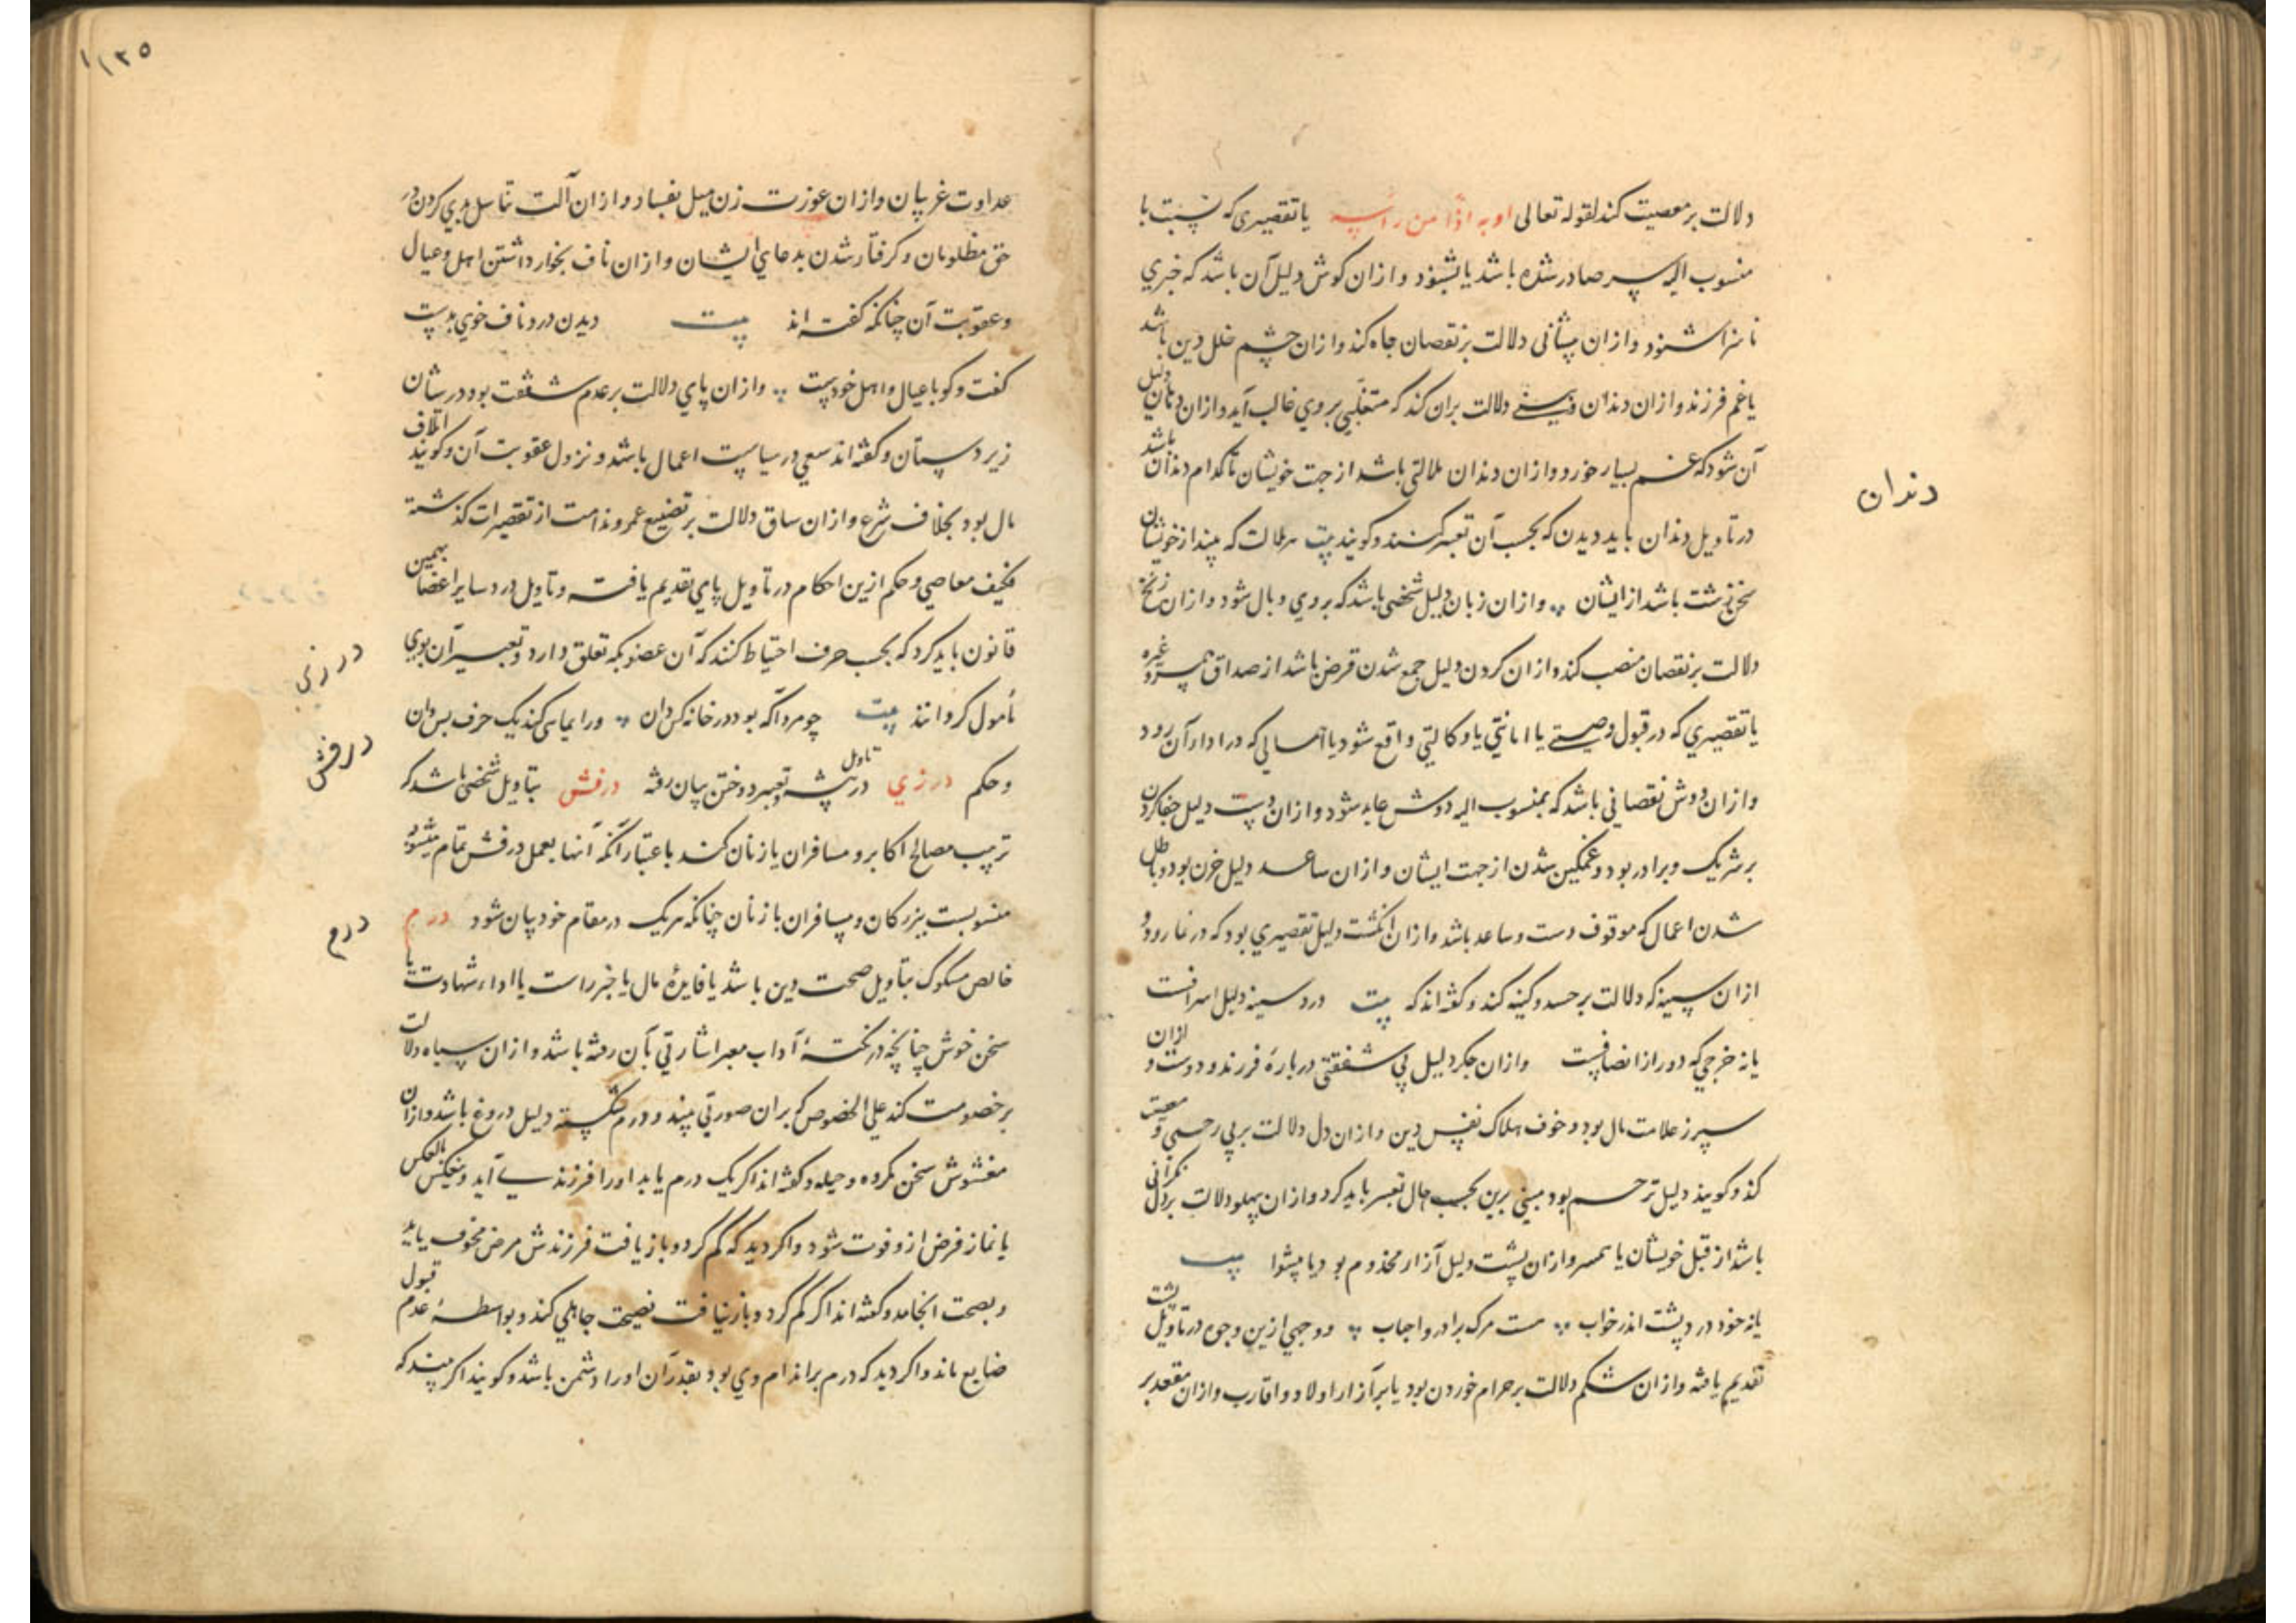 دلالت بر معصیت کند لقوله تعالی او به اذا من راسه یا تقصیری که نسبت با
منسوب الیه سر صادر شده باشد یا بشنود و از ان کوش دلیل آن باشد که خبری
ناسزا شنود و از ان پیشانی دلالت بر نقصان جاه کند و از ان چشم خلل دین باشد
یا غم فرزند و از ان دندان دلالت بران کند که متغلبی بر وی غالب آید و از ان دهان دلیل
آن شود که غم بسیار خورد و از ان دندان ملالتی باشد از جهت خویشان تا کدام دندان باشد
دندان
در تاویل دندان باید دیدن که بحسب آن تعبیر کنند و کویند بیت هر علالت که بیند از خویشان
سخن زشت باشد از ایشان و از ان زبان دلیل شخصی باشد که بر وی وبال شود و از ان زنخ
دلالت بر نقصان منصب کند و از ان کردن دلیل جمع شدن قرض باشد از صداق غیره
یا تقصیری که در قبول وصیتی یا امانتی یا وکالتی واقع شود یا که در ادا آن رود
و از ان دوش نقصانی باشد که بمنسوب الیه دوش عاید شود و از ان دست دلیل جفا کردن
بر شریک و برادر بود و غمکین شدن از جهت ایشان و از ان ساعد دلیل حزن بود و باطل
شدن اعمال که موقوف دست و ساعد باشد و از ان انکشت دلیل تقصیری بود که در نماز رود و
از ان سینه که دلالت بر حسد و کینه کند و کفته اند که بیت درد سینه دلیل اسرافست
یا نه خرجی که دور از انصافست و از ان جکر دلیل بی شفقتی در باره فرزند و دوست و از ان
سپرز علامت مال بود و خوف هلاک نفس دین و از ان دل دلالت بر بی رحمی و معصیت
کند و کویند دلیل ترحم بود مبنی برین بحسب حال تعبیر باید کرد و از ان پهلو دلالت بر دل نکرانی
باشد از قبل خویشان یا همسر و از ان پشت دلیل آزار مخدوم بود یا پیشوا بیت
یا نه خود درد پشت اندر خواب هست مرک برادر و احباب و وجهی ازین وجوه در تاویل پشت
تقدیم یافته و از ان شکم دلالت بر حرام خوردن بود یا بر آزار اولاد و اقارب و از ان مقعد بر
۱۲۵
عداوت غریبان و از ان عورت زن میل بفساد و از ان آلت تناسل بدی کردن در
حق مظلومان و کرفتار شدن بدعای ایشان و از ان ناف بخوار داشتن اهل و عیال
و عقوبت آن چنانکه کفته اند بیت دیدن درد ناف خوی بدست
کفت و کو با عیال و اهل خودست و از ان پای دلالت بر عدم شفقت بود در شان
زیر دستان و کفته اند سعی در سیاست اعمال باشد و نزول عقوبت آن و کویند اتلاف
مال بود بخلاف شرع و از ان ساق دلالت بر تضییع عمر و ندامت از تقصیرات کذشته
فکیف معاصی و حکم ازین احکام در تاویل پای تقدیم یافت و تاویل درد سایر اعضا بهمین
قانون باید کرد که بحسب حرف احتیاط کنند که آن عضو بکه تعلق دارد و تعبیر آن بوی
درزی
مأمول کردانند بیت چو مرد آکه بود در خانه کس دان ورا ایما کند یک حرف بس دان
درفش
و حکم درزی در تاویل پیشه و تعبیر دوختن بیان رفته درفش بتاویل شخصی باشد که
ترتیب مصالح اکابر و مسافران یا زنان کند باعتبار آنکه آنها بعمل درفش تمام میشود
منسوبست ببزرکان و مسافران یا زنان چنانکه هر یک در مقام خود بیان شود درم
درم
خالص مسکوک بتاویل صحت دین باشد یا فایده مال یا خبر راست یا اداء شهادت یا
سخن خوش چنانچه در نکته آداب معبر اشارتی بآن رفته باشد و از ان سیاه دلالت
بر خصومت کند علی الخصوص که بران صورتی بیند و درم شکسته دلیل دروغ باشد و از ان
مغشوش سخن مکروه و حیله و کفته اند اکر یک درم یابد او را فرزند آید و بالعکس
یا نماز فرض ازو فوت شود و اکر دید که کم کرد و باز یافت فرزندش مرض مخوف یابد
و بصحت انجامد و کفته اند اکر کم کرد و باز نیافت نصیحت جاهلی کند و بواسطه عدم قبول
ضایع ماند و اکر دید که درم بر اندام وی بود بقدر آن او را دشمن باشد و کویند اکر بیند که